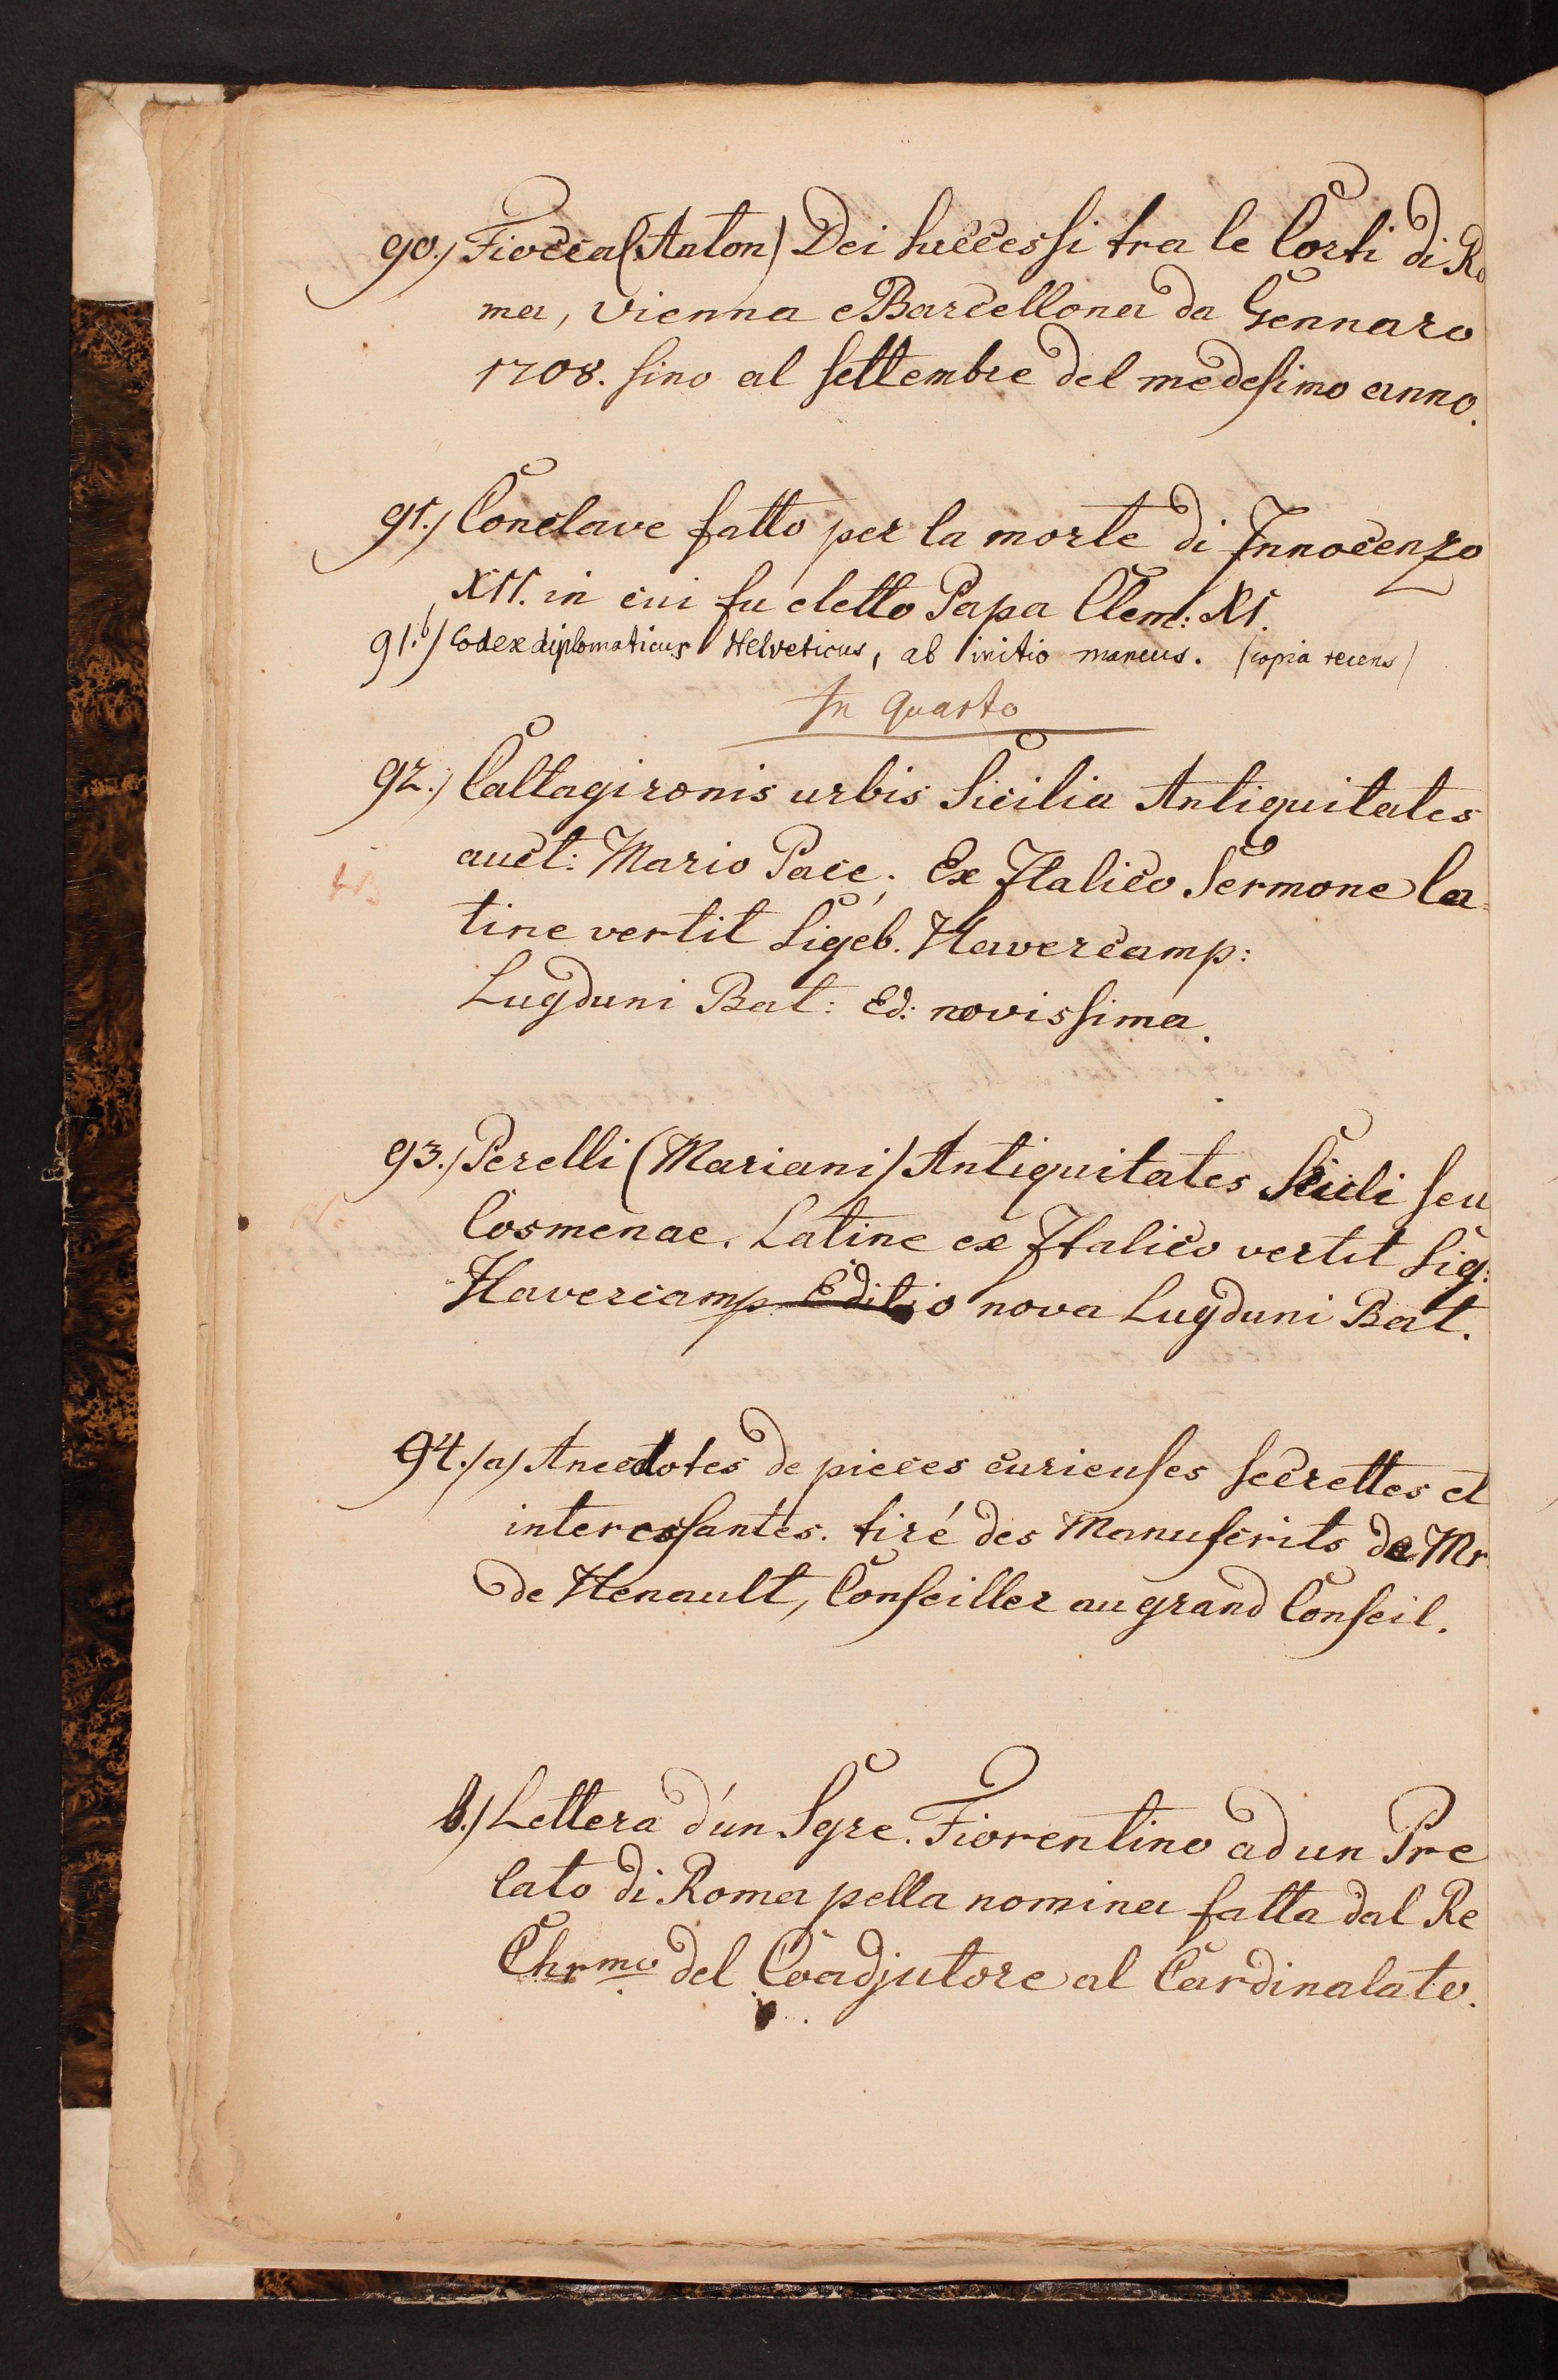 90.) Fiocca (Anton) Dei successi tra le Corti di Ro
ma, Vienna e Barcellona da Gennaro
1708. sino al settembre del medesimo anno.
91.) Conclave fatto per la morte di Innocenzo
XII. in cui fu eletto Papa Clem: XI.
91.b) Codex diplomaticus Helveticus, ab initio mancus. (copia recens)
In Quarto
92.) Caltagironis urbis Sicilia Antiquitates
auct: Mario Pace; Ex Italico Sermone la-
tine vertit Sigeb. Havercamp:
Lugduni Bat: Ed: novissima.
93.) Perelli (Mariani) Antiquitates Siculi seu
Cosmenae. Latine ex Italico vertit Sig:
Havercamp Editio nova Lugduni Bat.
94.) a) Anecdotes de pieces curieuses secrettes et
interessantes. tiré des Manuscrits de Mr.
de Henault, Conseiller au grand Conseil.
b.) Lettera d'un Sgre. Fiorentino ad un Pre
lato di Roma pella nomina fatta dal Re
Chrmo del Coadjutore al Cardinalato.